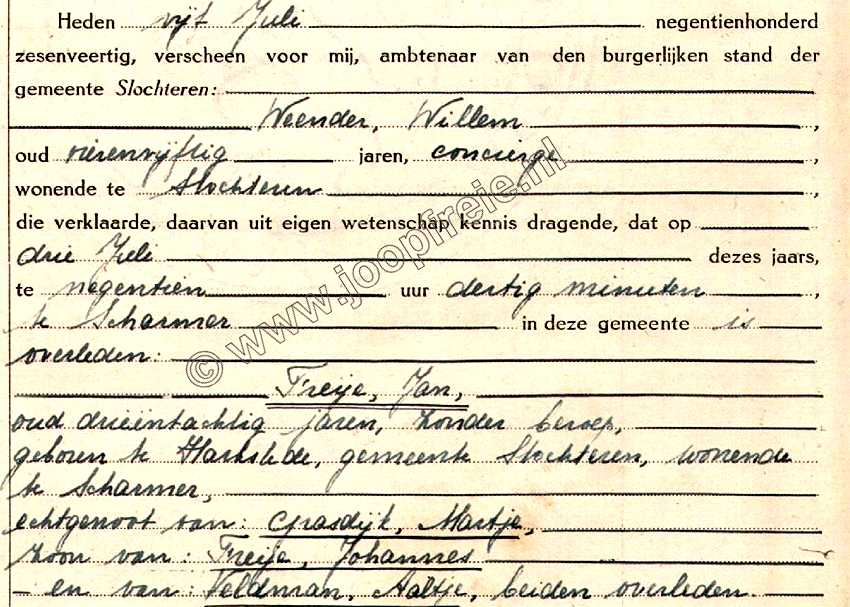 Heden vijf Juli negentienhonderd
zesenveertig, verscheen voor mij, ambtenaar van den burgerlijken stand der
gemeente Slochteren:
Weender, Willem,
oud vierenvijftig jaren, concierge,
wonende te Slochteren,
die verklaarde, daarvan uit eigen wetenschap kennis dragende, dat op
drie Juli dezes jaars,
te negentien uur dertig minuten,
te Scharmer in deze gemeente is
overleden:
Freije, Jan,
oud drieëntachtig jaren, zonder beroep,
geboren te Harkstede, gemeente Slochteren, wonende
te Scharmer,
echtgenoot van: Grasdijk, Martje,
zoon van: Freije, Johannes
- en van: Veldman, Aaltje, beiden overleden.
© www.joopfreie.nl